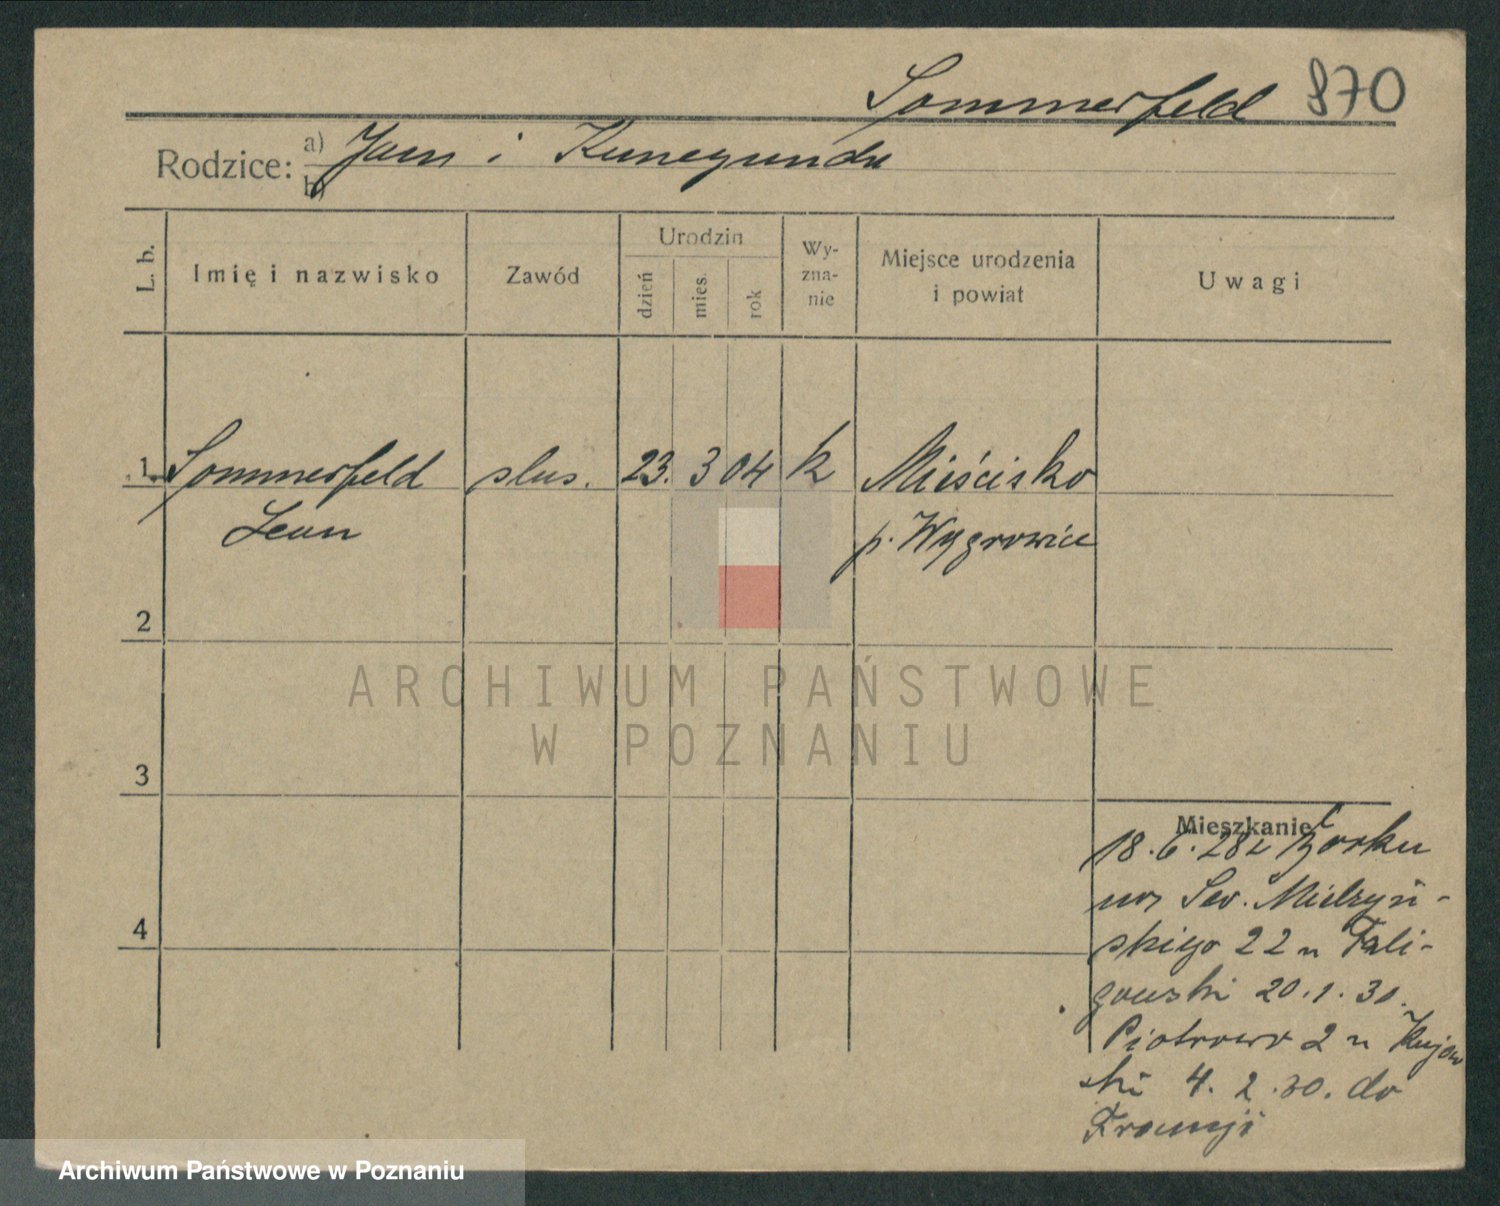 Sommerfeld 870
Rodzice: a) Jan i Kunegunda
b)
L. b. Imię i nazwisko Zawód Urodzin dzień mies. rok Wyznanie Miejsce urodzenia i powiat Uwagi
1 Sommerfeld slus. 23. 3 04 k Mieścisko
Leon p. Wągrowiec
2
3
4
Mieszkanie
18. 6. 28 z Borku
Sew. Mielżyń-
skiego 22 u Fali-
gowski 20. 1. 30.
Piotrowo 2 u Kujaw
ski 4. 2. 30. do
Francji
ARCHIWUM PAŃSTWOWE
W POZNANIU
Archiwum Państwowe w Poznaniu